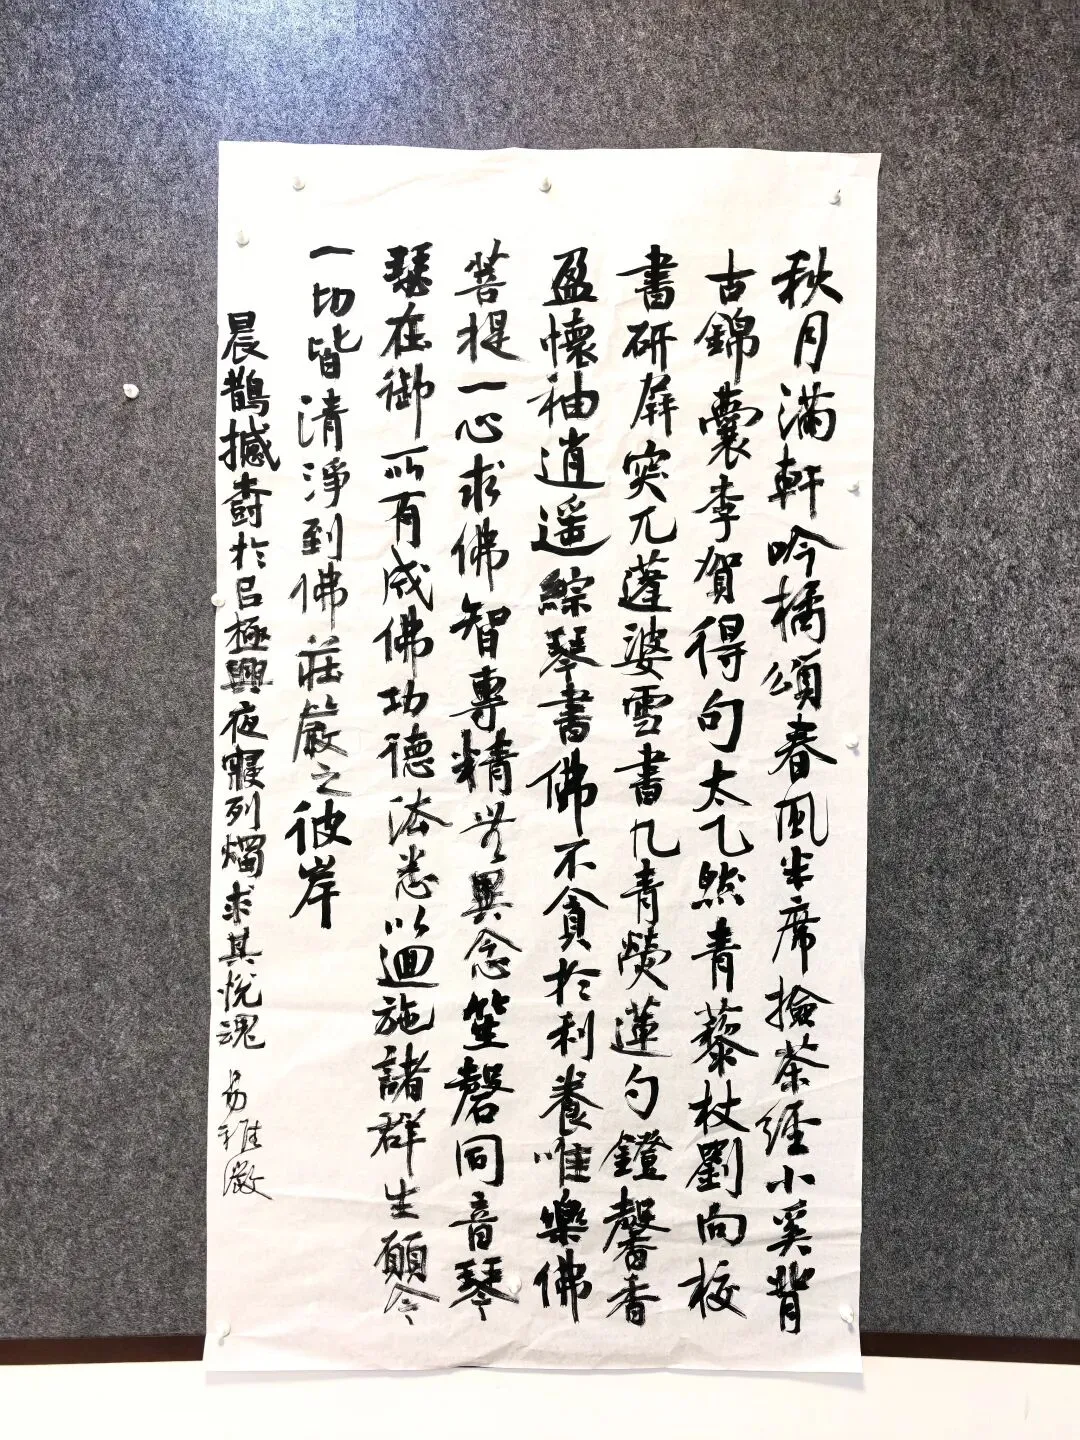 秋月滿軒吟橘頌春風半席撿茶經小奚背
古錦囊李賀得句太乙然青藜杖劉向校
書研屏突兀蓬婆雪書几青熒蓮勺鐙馨香
盈懷袖逍遥綜琴書佛不貪於利養唯樂佛
菩提一心求佛智專精無異念笙磬同音琴
瑟在御所有成佛功德法悉以迴施諸群生願令
一切皆清淨到佛莊嚴之彼岸
晨鵲撼樹於吕極興夜寢列燭求其悅魂